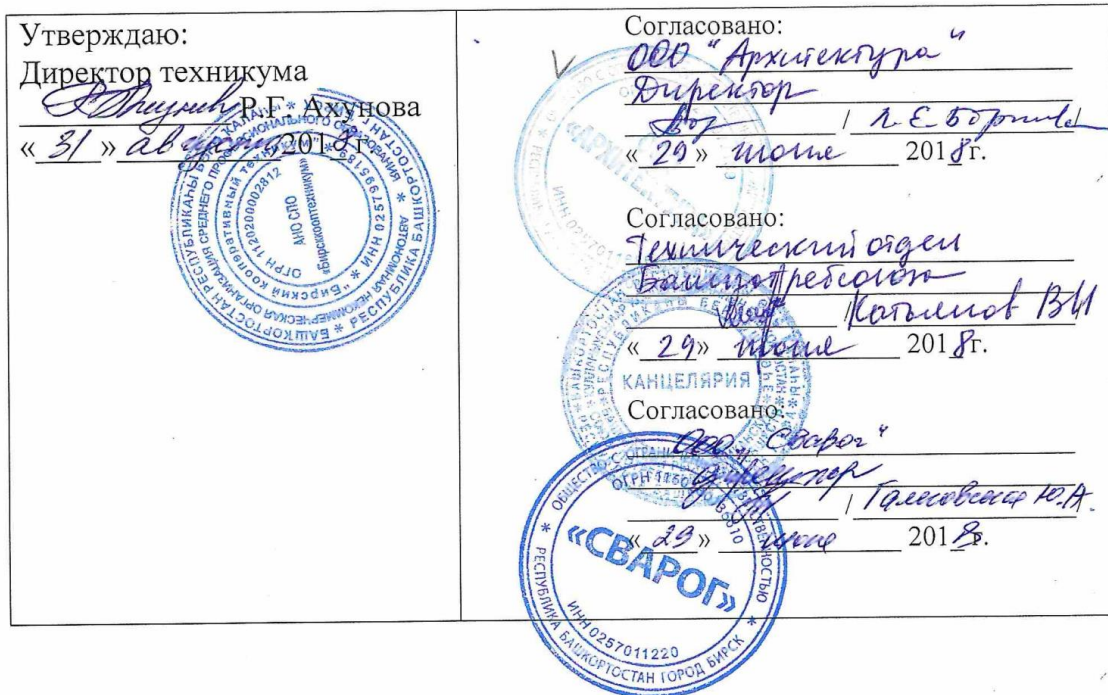 Утверждаю:
Директор техникума
Р.Г. Ахунова
« 31 » августа 2018 г.
РЕСПУБЛИКА БАШКОРТОСТАН
АВТОНОМНАЯ НЕКОММЕРЧЕСКАЯ ОРГАНИЗАЦИЯ СРЕДНЕГО ПРОФЕССИОНАЛЬНОГО ОБРАЗОВАНИЯ
"Бирский кооперативный техникум"
ОГРН 1120200002812
АНО СПО
"Бирсккооптехникум"
Согласовано:
ООО "Архитектура"
Директор
/ Л.Е.
« 29 » июня 2018г.
Согласовано:
Технический отдел
Башпотребсоюза
/ В И
« 29 » июня 2018г.
КАНЦЕЛЯРИЯ
Согласовано:
ООО „Сварог"
директор
/ Ю.А.
« 29 » июня 2018г.
ОБЩЕСТВО С ОГРАНИЧЕННОЙ ОТВЕТСТВЕННОСТЬЮ
«СВАРОГ»
ИНН 0257011220
РЕСПУБЛИКА БАШКОРТОСТАН ГОРОД БИРСК